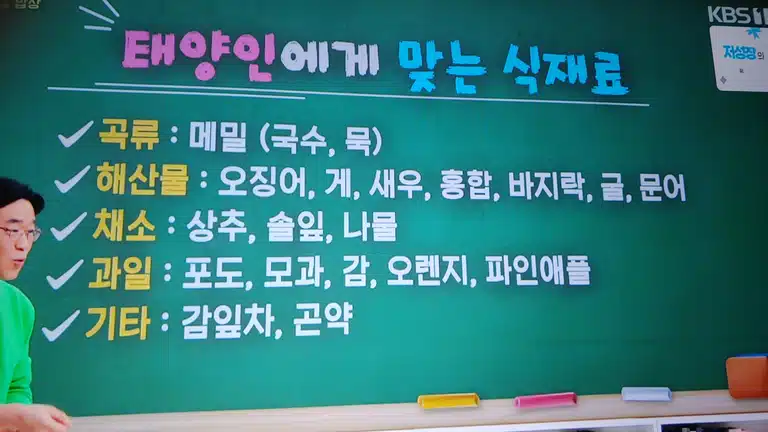 밥상
KBS 1
태양인에게 맞는 식재료
저성장의
✓ 곡류 : 메밀 (국수, 묵)
✓ 해산물 : 오징어, 게, 새우, 홍합, 바지락, 굴, 문어
✓ 채소 : 상추, 솔잎, 나물
✓ 과일 : 포도, 모과, 감, 오렌지, 파인애플
✓ 기타 : 감잎차, 곤약